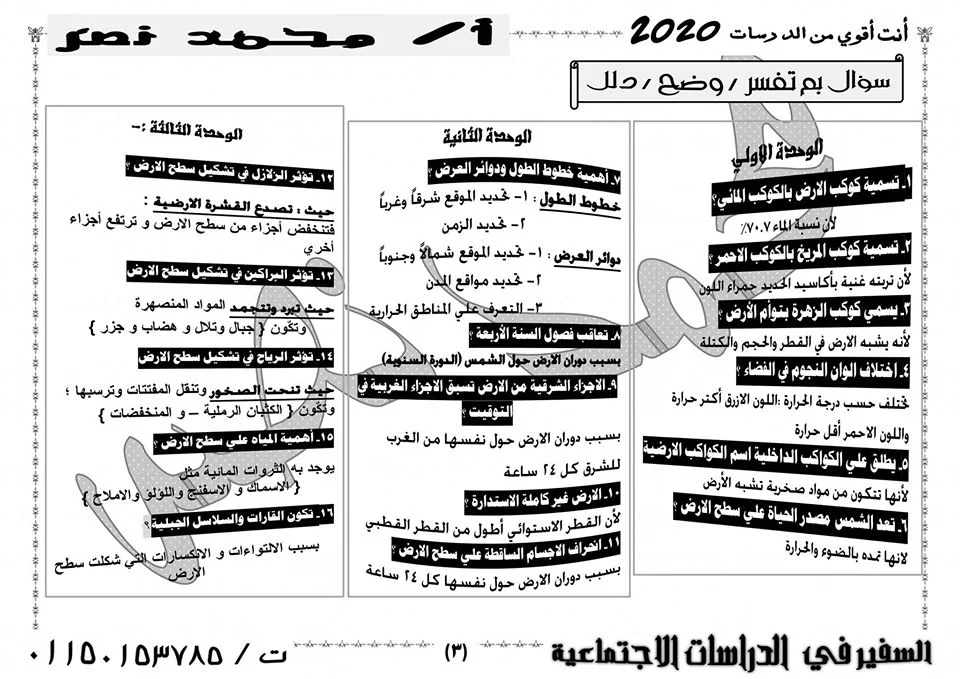 أنت أقوي من الدرسات 2020
أ/ محمد نصر
سؤال بم تفسر / وضح / دلل
الوحدة الاولي
١ـ تسمية كوكب الارض بالكوكب المائي؟
لأن نسبة الماء ٧٠.٧٪
٢ـ تسمية كوكب المريخ بالكوكب الاحمر ؟
لأن تربته غنية بأكاسيد الحديد حمراء اللون
٣ـ يسمي كوكب الزهرة بتوأم الأرض ؟
لأنه يشبه الارض في القطر والحجم والكتلة
٤ـ اختلاف الوان النجوم في الفضاء ؟
تختلف حسب درجة الحرارة :اللون الازرق أكتر حرارة
واللون الاحمر أقل حرارة
٥ـ يطلق علي الكواكب الداخلية اسم الكواكب الارضية
لأنها تتكون من مواد صخرية تشبه الأرض
٦ـ تعد الشمس مصدر الحياة علي سطح الارض ؟
لانها تمده بالضوء والحرارة
الوحدة الثانية
٧ـ أهمية خطوط الطول ودوائر العرض ؟
خطوط الطول : ١- تحديد الموقع شرقاً وغرباً
٢- تحديد الزمن
دوائر العرض : ١- تحديد الموقع شمالاً وجنوباً
٢- تحديد مواقع المدن
٣- التعرف علي المناطق الحرارية
٨ـ تعاقب فصول السنة الأربعة ؟
بسبب دوران الارض حول الشمس (الدورة السنوية)
٩ـ الاجزاء الشرقية من الارض تسبق الاجزاء الغربية في
التوقيت ؟
بسبب دوران الارض حول نفسها من الغرب
للشرق كل ٢٤ ساعة
١٠ـ الارض غير كاملة الاستدارة ؟
لأن القطر الاستوائي أطول من القطر القطبي
١١ـ انحراف الاجسام الساقطة علي سطح الارض ؟
بسبب دوران الارض حول نفسها كل ٢٤ ساعة
الوحدة الثالثة :-
١٢ـ تؤثر الزلازل في تشكيل سطح الارض ؟
حيث : تصدع القشرة الارضية :
فتنخفض أجزاء من سطح الارض و ترتفع أجزاء
أخري
١٣ـ تؤثر البراكين في تشكيل سطح الارض
حيث تبرد وتتجمد المواد المنصهرة
وتكون { جبال وتلال و هضاب و جزر }
١٤ـ تؤثر الرياح في تشكيل سطح الارض
حيث تنحت الصخور وتنقل المفتتات وترسبها ؛
وتكون { الكثبان الرملية – و المنخفضات }
١٥ـ أهمية المياه علي سطح الارض ؟
يوجد به الثروات المائية مثل
{ الاسماك و الاسفنج واللؤلؤ والاملاح }
١٦ـ تكون القارات والسلاسل الجبلية ؟
بسبب الالتواءات و الانكسارات التي شكلت سطح
الارض
السفير في الدراسات الاجتماعية
(٣)
ت / ٠١١٥٠١٥٣٧٨٥